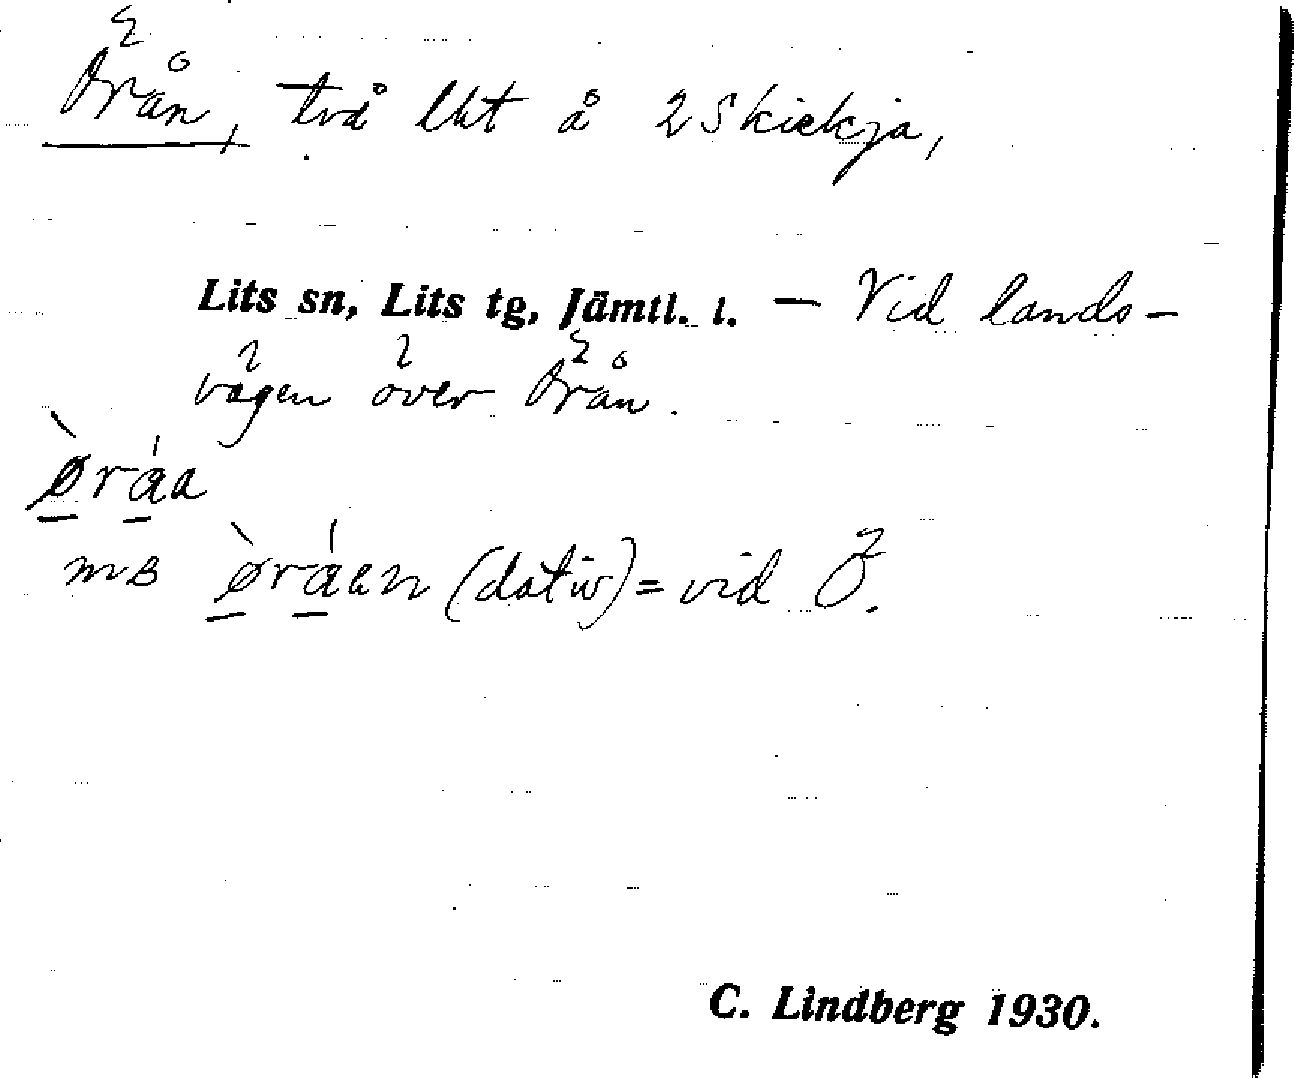 Örån, två lht å 2 Skickja,
Lits sn, Lits tg, Jämtl. l. — Vid lands-
vägen över Örån.
ø̀ráa
ms ø̀ráan (dativ) = vid Ö.
C. Lindberg 1930.